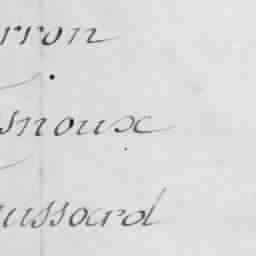 rron
snoux
ussard